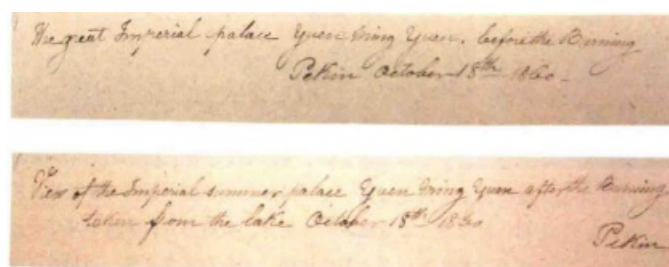 The great Imperial palace Yuen Ming Yuen. before the Burning
Pekin October 18th 1860 -
View of the Imperial summer palace Yuen Ming Yuen after the Burning
taken from the lake October 18th 1860
Pekin